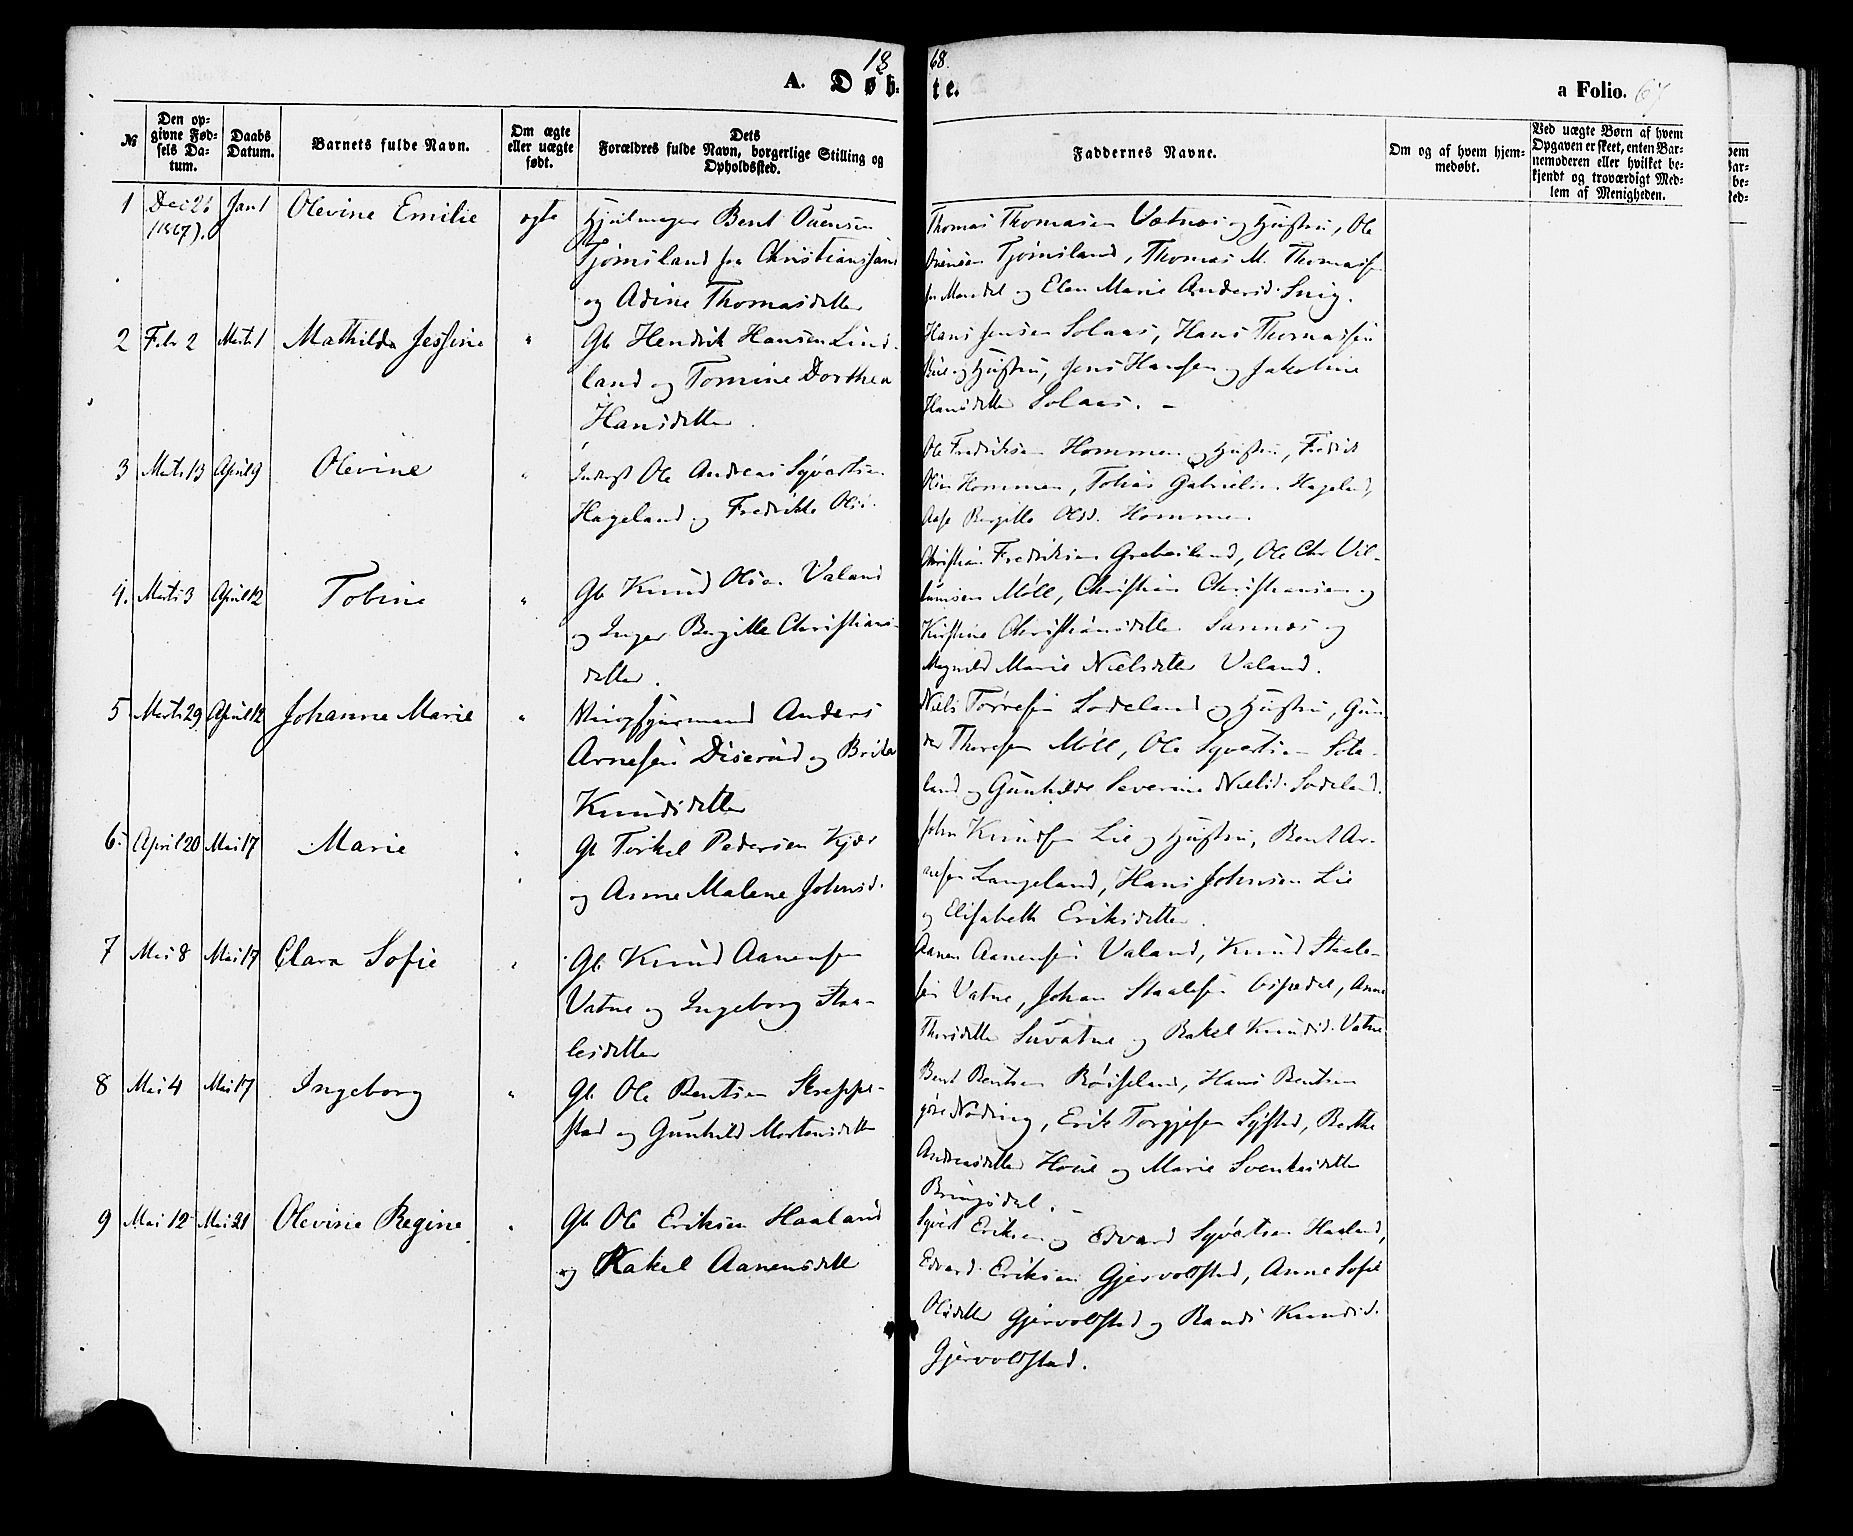 1868.
A. Døbte.
a Folio. 67
№
Den op-
givne Fød-
sels Da-
tum.
Daabs
Datum.
Barnets fulde Navn.
Om ægte
eller uægte
født.
Dets
Forældres fulde Navn, borgerlige Stilling og
Opholdssted.
Faddernes Navne.
Om og af hvem hjem-
medøbt.
Ved uægte Børn af hvem
Opgaven er skeet, enten Bar-
nemoderen eller hvilket be-
kjendt og troværdigt Med-
lem af Menigheden.
1 Dec 26 (1867). Jan 1 Olevine Emilie ægte
Bent Ouensen
Tjomsland fra Christianssand
og Adine Thomasdatter
Thomas Thomasen Vatnas og Hustru, Ole
Ouensen Tjomsland, Thomas M. Thomas
Mandal og Elen Marie Andersd.
2 Febr 2 Marts 1 Mathilde Jessine "
Gb Hendrik Hansen Lind-
land og Tomine Dorthea
Hansdatter
Hans Jensen Solaas, Hans Thomassen
og Hustru, Jens Hansen og Jakobine
Hansdatter Solaas. -
3 Marts 13 April 9 Olevine "
Inderst Ole Andreas Syvertsen
Hageland og Fredrikke Olsd.
Ole Fredriksen Hommen og Hustru, Fredrik
Olsen Hommen, Tobias Gabrielsen Hageland,
Aase Bergitte Olsd. Hommen
4. Marts 3 April 12 Tobine "
Gb Knud Olsen Valand
og Inger Bergitte Christians-
datter.
Christian Fredriksen, Ole Chr Vil-
lumsen Møll, Christian Christiansen og
Kirstine Christiansdatter og
Magnild Marie Nielsdatter Valand.
5 Marts 29 April 12 Johanne Marie "
Anders
Arnesen Diserud og Brita
Knudsdatter
Niels Torresen Lodeland og Hustru, Gun-
der Thoresen Møll, Ole Syvertsen
land og Gunhilde Severine Nielsd. Lodeland.
6. April 20 Mai 17 Marie "
Gb Torkel Pedersen Kjær
og Anne Malene Johnsd.
John Knudsen Lie og Hustru, Bent Ar-
nesen Langeland, Hans Johnsen Lie
og Elisabeth Eriksdatter.
7 Mai 8 Mai 17 Clara Sofie "
Gb. Knud Aanensen
Vatne og Ingeborg Staa-
lesdatter
Aanen Aanensen Valand, Knud Staale-
sen Vatne, Johan Staalesen, Anne
Thorsdatter Suvatne og Rakel Knudsd. Vatne
8 Mai 4 Mai 17 Ingeborg "
Gb Ole Bentsen Streppe-
stad og Gunhild Mortensdatter
Bent Bentsen Røiseland, Hans Bentsen
Nøding, Erik Torgjesen, Berthe
Andreasdatter Houe og Marie Svenkesdatter
Bringsdal. -
9 Mai 12 Mai 21 Olevine Regine "
Gb Ole Eriksen Haaland
og Rakel Aanensdatter
Syvert Eriksen og Edvard Syvertsen Haaland,
Edvard Eriksen Gjervoldstad, Anne Sofie
Olsdatter Gjervoldstad og Randi Knudsd.
Gjervoldstad.